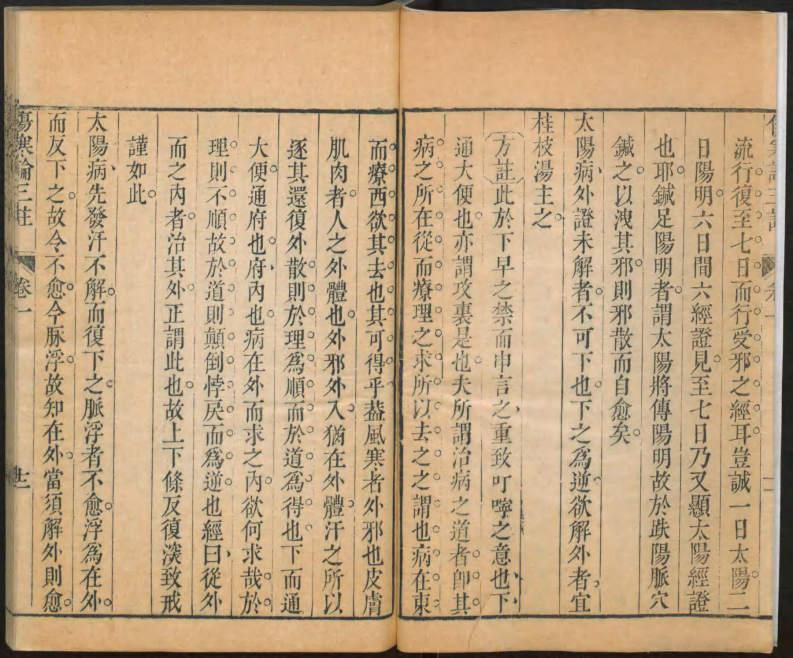 流行復至七日而行受邪之經耳豈誠一日太陽二
日陽明六日間六經證見至七日乃又顯太陽經證
也耶鍼足陽明者謂太陽將傳陽明故於趺陽脈穴
鍼之以洩其邪則邪散而自愈矣
太陽病外證未解者不可下也下之爲逆欲解外者宜
桂枝湯主之
方註此於下早之禁而申言之重致叮嚀之意也下
通大便也亦謂攻裏是也夫所謂治病之道者卽其
病之所在從而療理之求所以去之之謂也病在東
而療西欲其去也其可得乎葢風寒者外邪也皮膚
肌肉者人之外體也外邪外入猶在外體汗之所以
逐其還復外散則於理爲順而於道爲得也下而通
大便通府也府內也病在外而求之內欲何求哉於
理則不順故於道則顚倒悖戾而爲逆也經曰從外
而之內者治其外正謂此也故上下條反復淡致戒
謹如此
太陽病先發汗不解而復下之脈浮者不愈浮爲在外
而反下之故令不愈今脈浮故知在外當須解外則愈
傷寒論三註
卷一